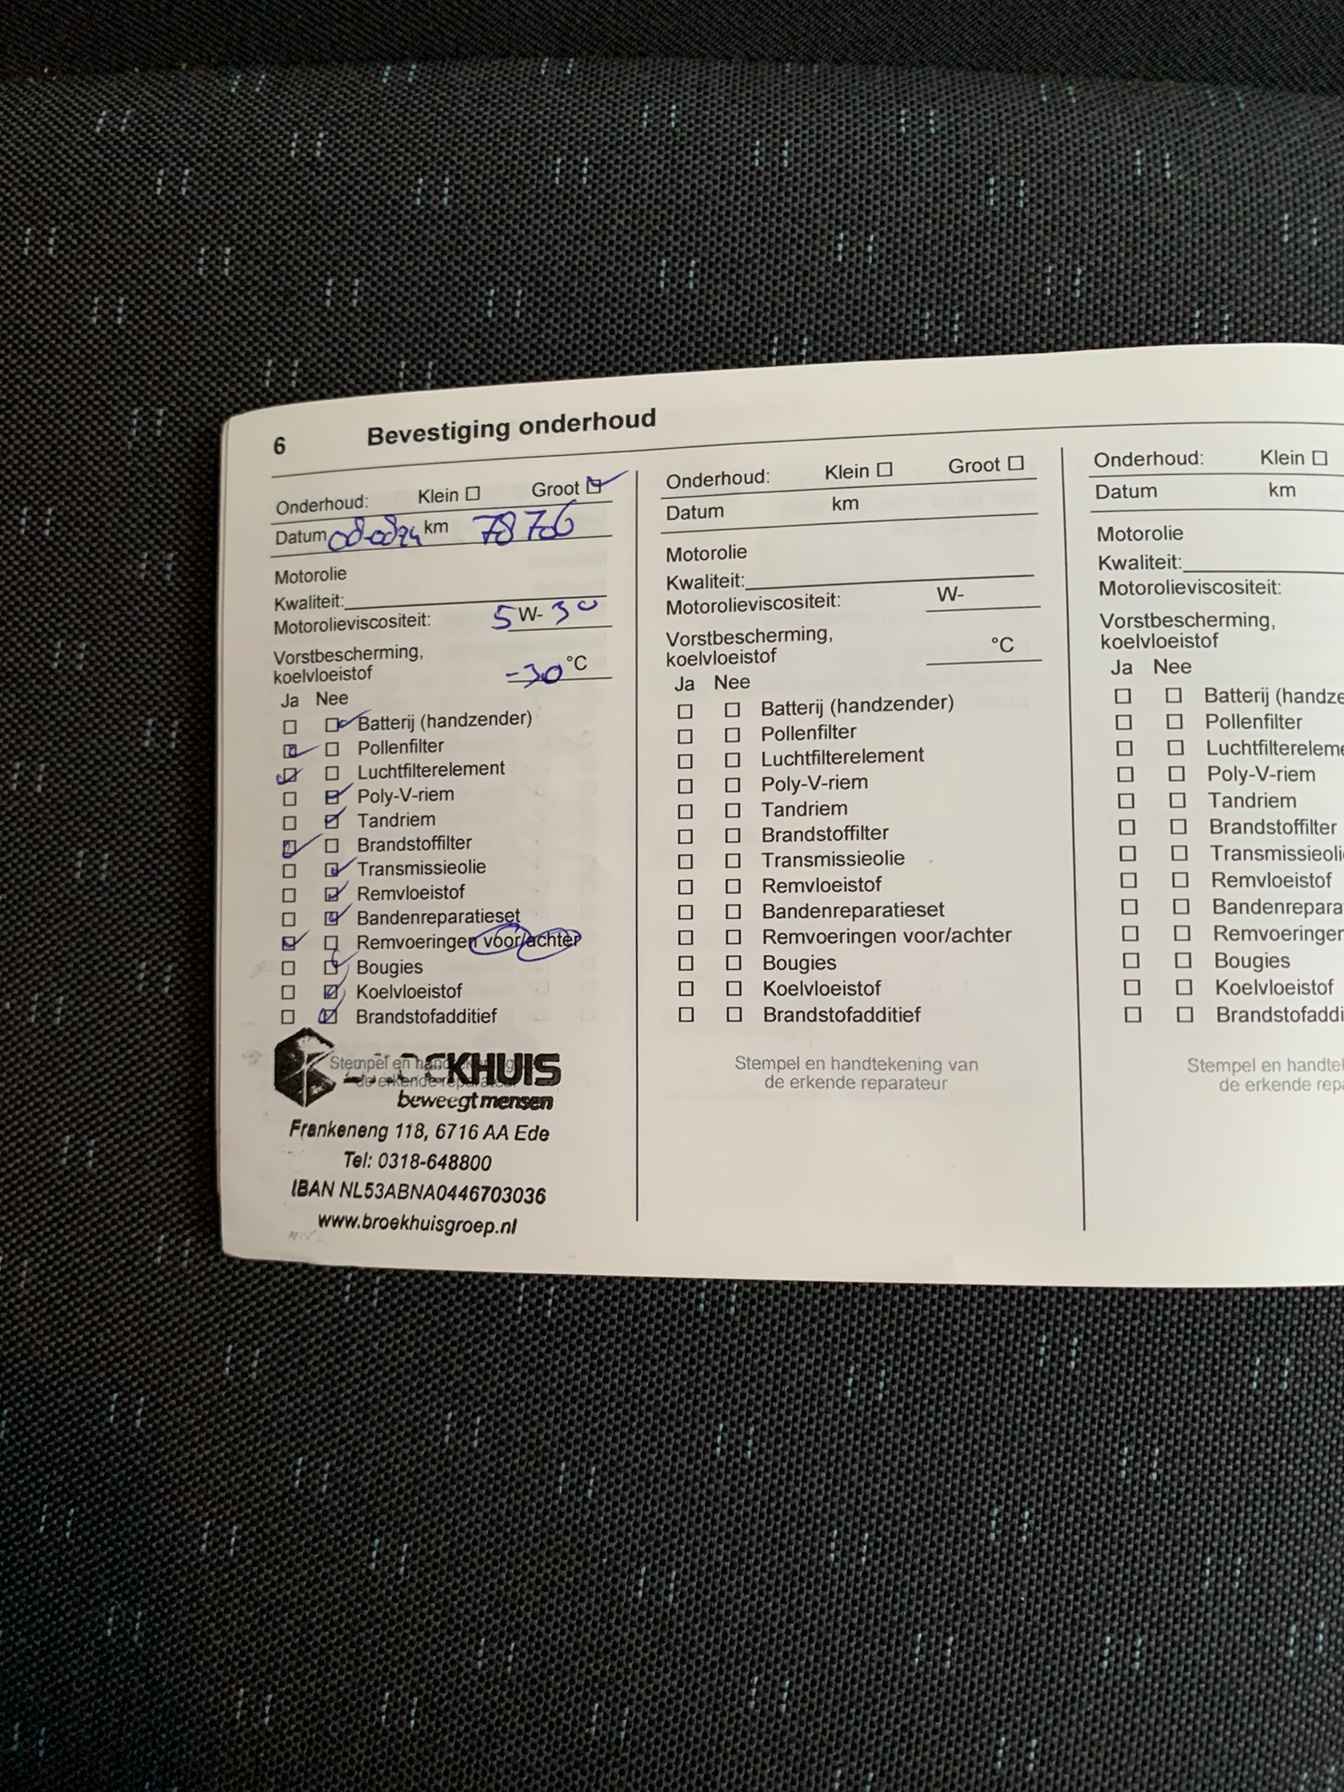 6 Bevestiging onderhoud
Onderhoud: Klein Groot
Datum 08-08-24 km 78706
Motorolie
Kwaliteit:
Motorolieviscositeit: 5 W- 30
Vorstbescherming,
koelvloeistof -30 °C
Ja Nee
Batterij (handzender)
Pollenfilter
Luchtfilterelement
Poly-V-riem
Tandriem
Brandstoffilter
Transmissieolie
Remvloeistof
Bandenreparatieset
Remvoeringen voor/achter
Bougies
Koelvloeistof
Brandstofadditief
Stempel en
KHUIS
beweegt mensen
Frankeneng 118, 6716 AA Ede
Tel: 0318-648800
IBAN NL53ABNA0446703036
www.broekhuisgroep.nl
Onderhoud: Klein Groot
Datum km
Motorolie
Kwaliteit:
Motorolieviscositeit: W-
Vorstbescherming,
koelvloeistof °C
Ja Nee
Batterij (handzender)
Pollenfilter
Luchtfilterelement
Poly-V-riem
Tandriem
Brandstoffilter
Transmissieolie
Remvloeistof
Bandenreparatieset
Remvoeringen voor/achter
Bougies
Koelvloeistof
Brandstofadditief
Stempel en handtekening van
de erkende reparateur
Onderhoud: Klein
Datum km
Motorolie
Kwaliteit:
Motorolieviscositeit:
Vorstbescherming,
koelvloeistof
Ja Nee
Batterij (handze
Pollenfilter
Luchtfiltereleme
Poly-V-riem
Tandriem
Brandstoffilter
Transmissieoli
Remvloeistof
Bandenrepara
Remvoeringer
Bougies
Koelvloeistof
Brandstofaddi
Stempel en handtek
de erkende repa